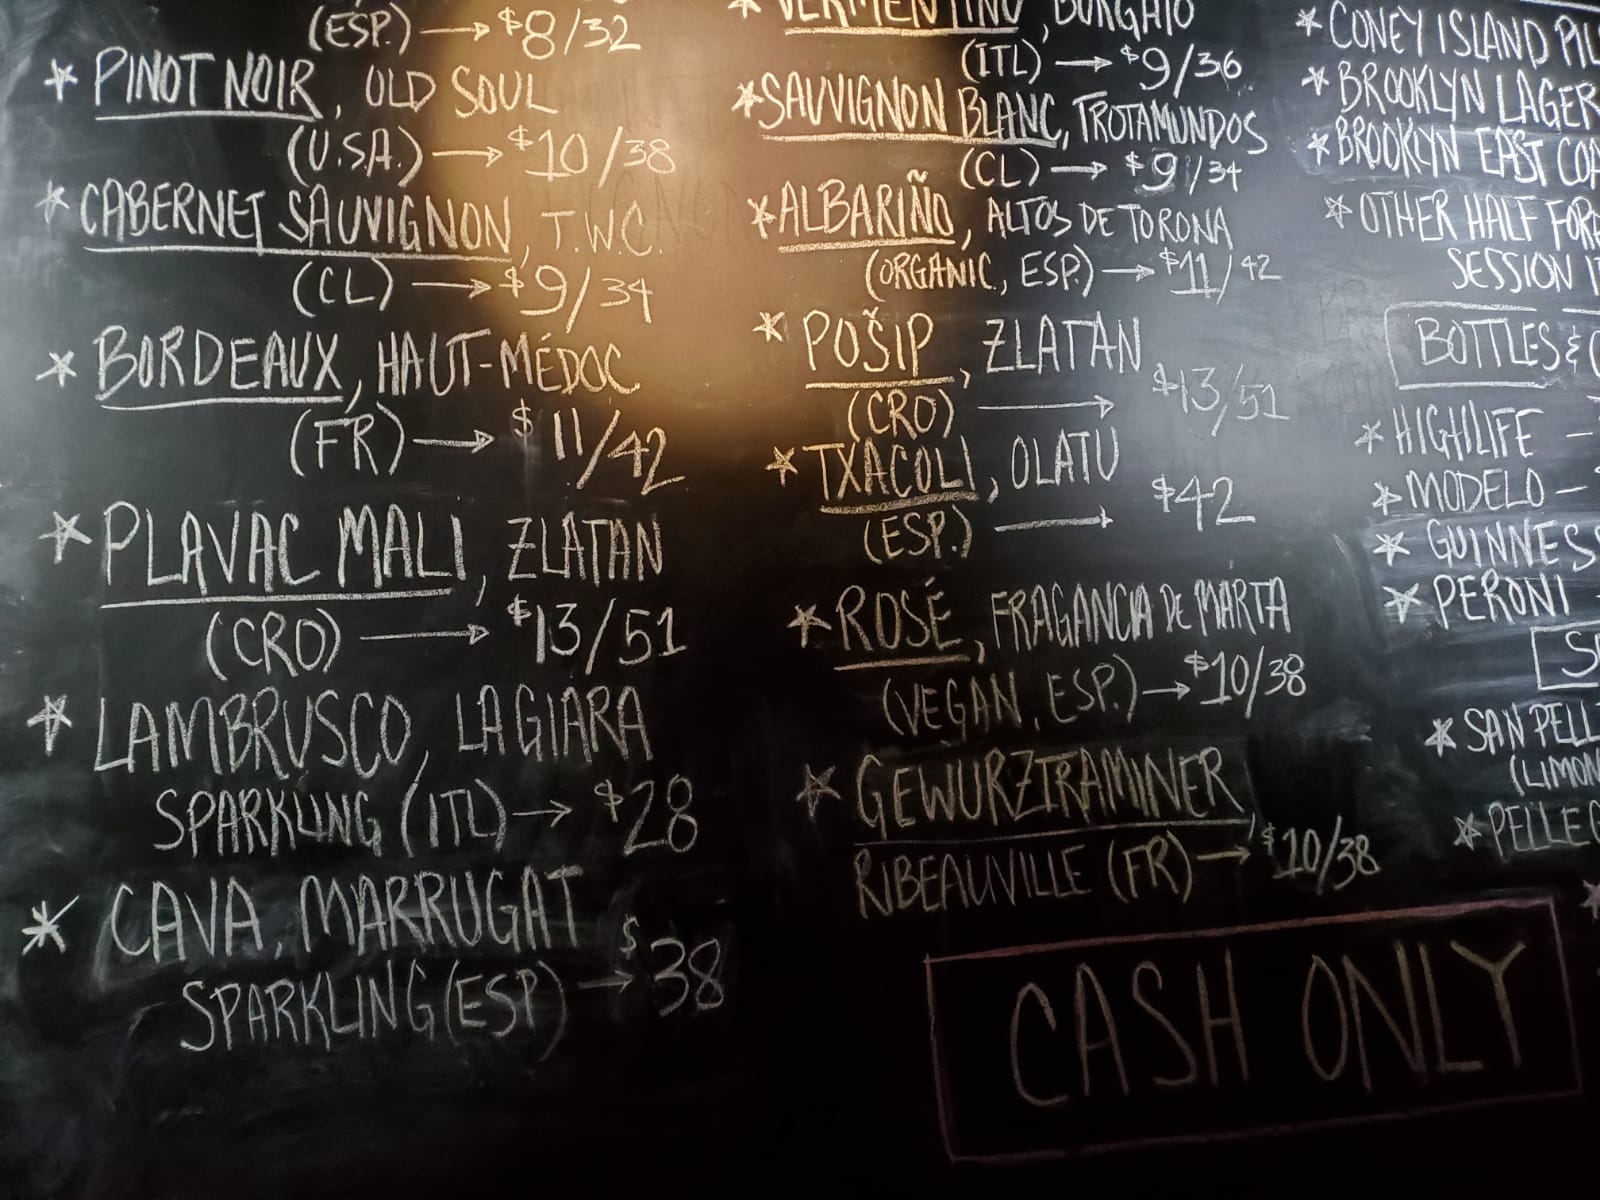 (ESP.) → $8/32
* PINOT NOIR, OLD SOUL
(U.S.A.) → $10/38
* CABERNET SAUVIGNON, T.W.C.
(CL) → $9/34
* BORDEAUX, HAUT-MÉDOC
(FR) → $11/42
* PLAVAC MALI, ZLATAN
(CRO) → $13/51
* LAMBRUSCO, LA GIARA
SPARKLING (ITL) → $28
* CAVA, MARRUGAT
SPARKLING (ESP) → $38
* VERMENTINO, BORGHIO
(ITL) → $9/36
* SAUVIGNON BLANC, TROTAMUNDOS
(CL) → $9/34
* ALBARIÑO, ALTOS DE TORONA
(ORGANIC, ESP.) → $11/42
* POŠIP, ZLATAN
(CRO) → $13/51
* TXACOLI, OLATU
(ESP.) → $42
* ROSÉ, FRAGANCIA DE MARTA
(VEGAN, ESP.) → $10/38
* GEWURZTRAMINER,
RIBEAUVILLE (FR) → $10/38
CASH ONLY
* CONEY ISLAND PIL
* BROOKLYN LAGER
* BROOKLYN EAST COA
* OTHER HALF FOR
SESSION I
BOTTLES &
* HIGHLIFE –
* MODELO –
* GUINNES
* PERONI
* SAN PELL
(LIMON
* PELLEG